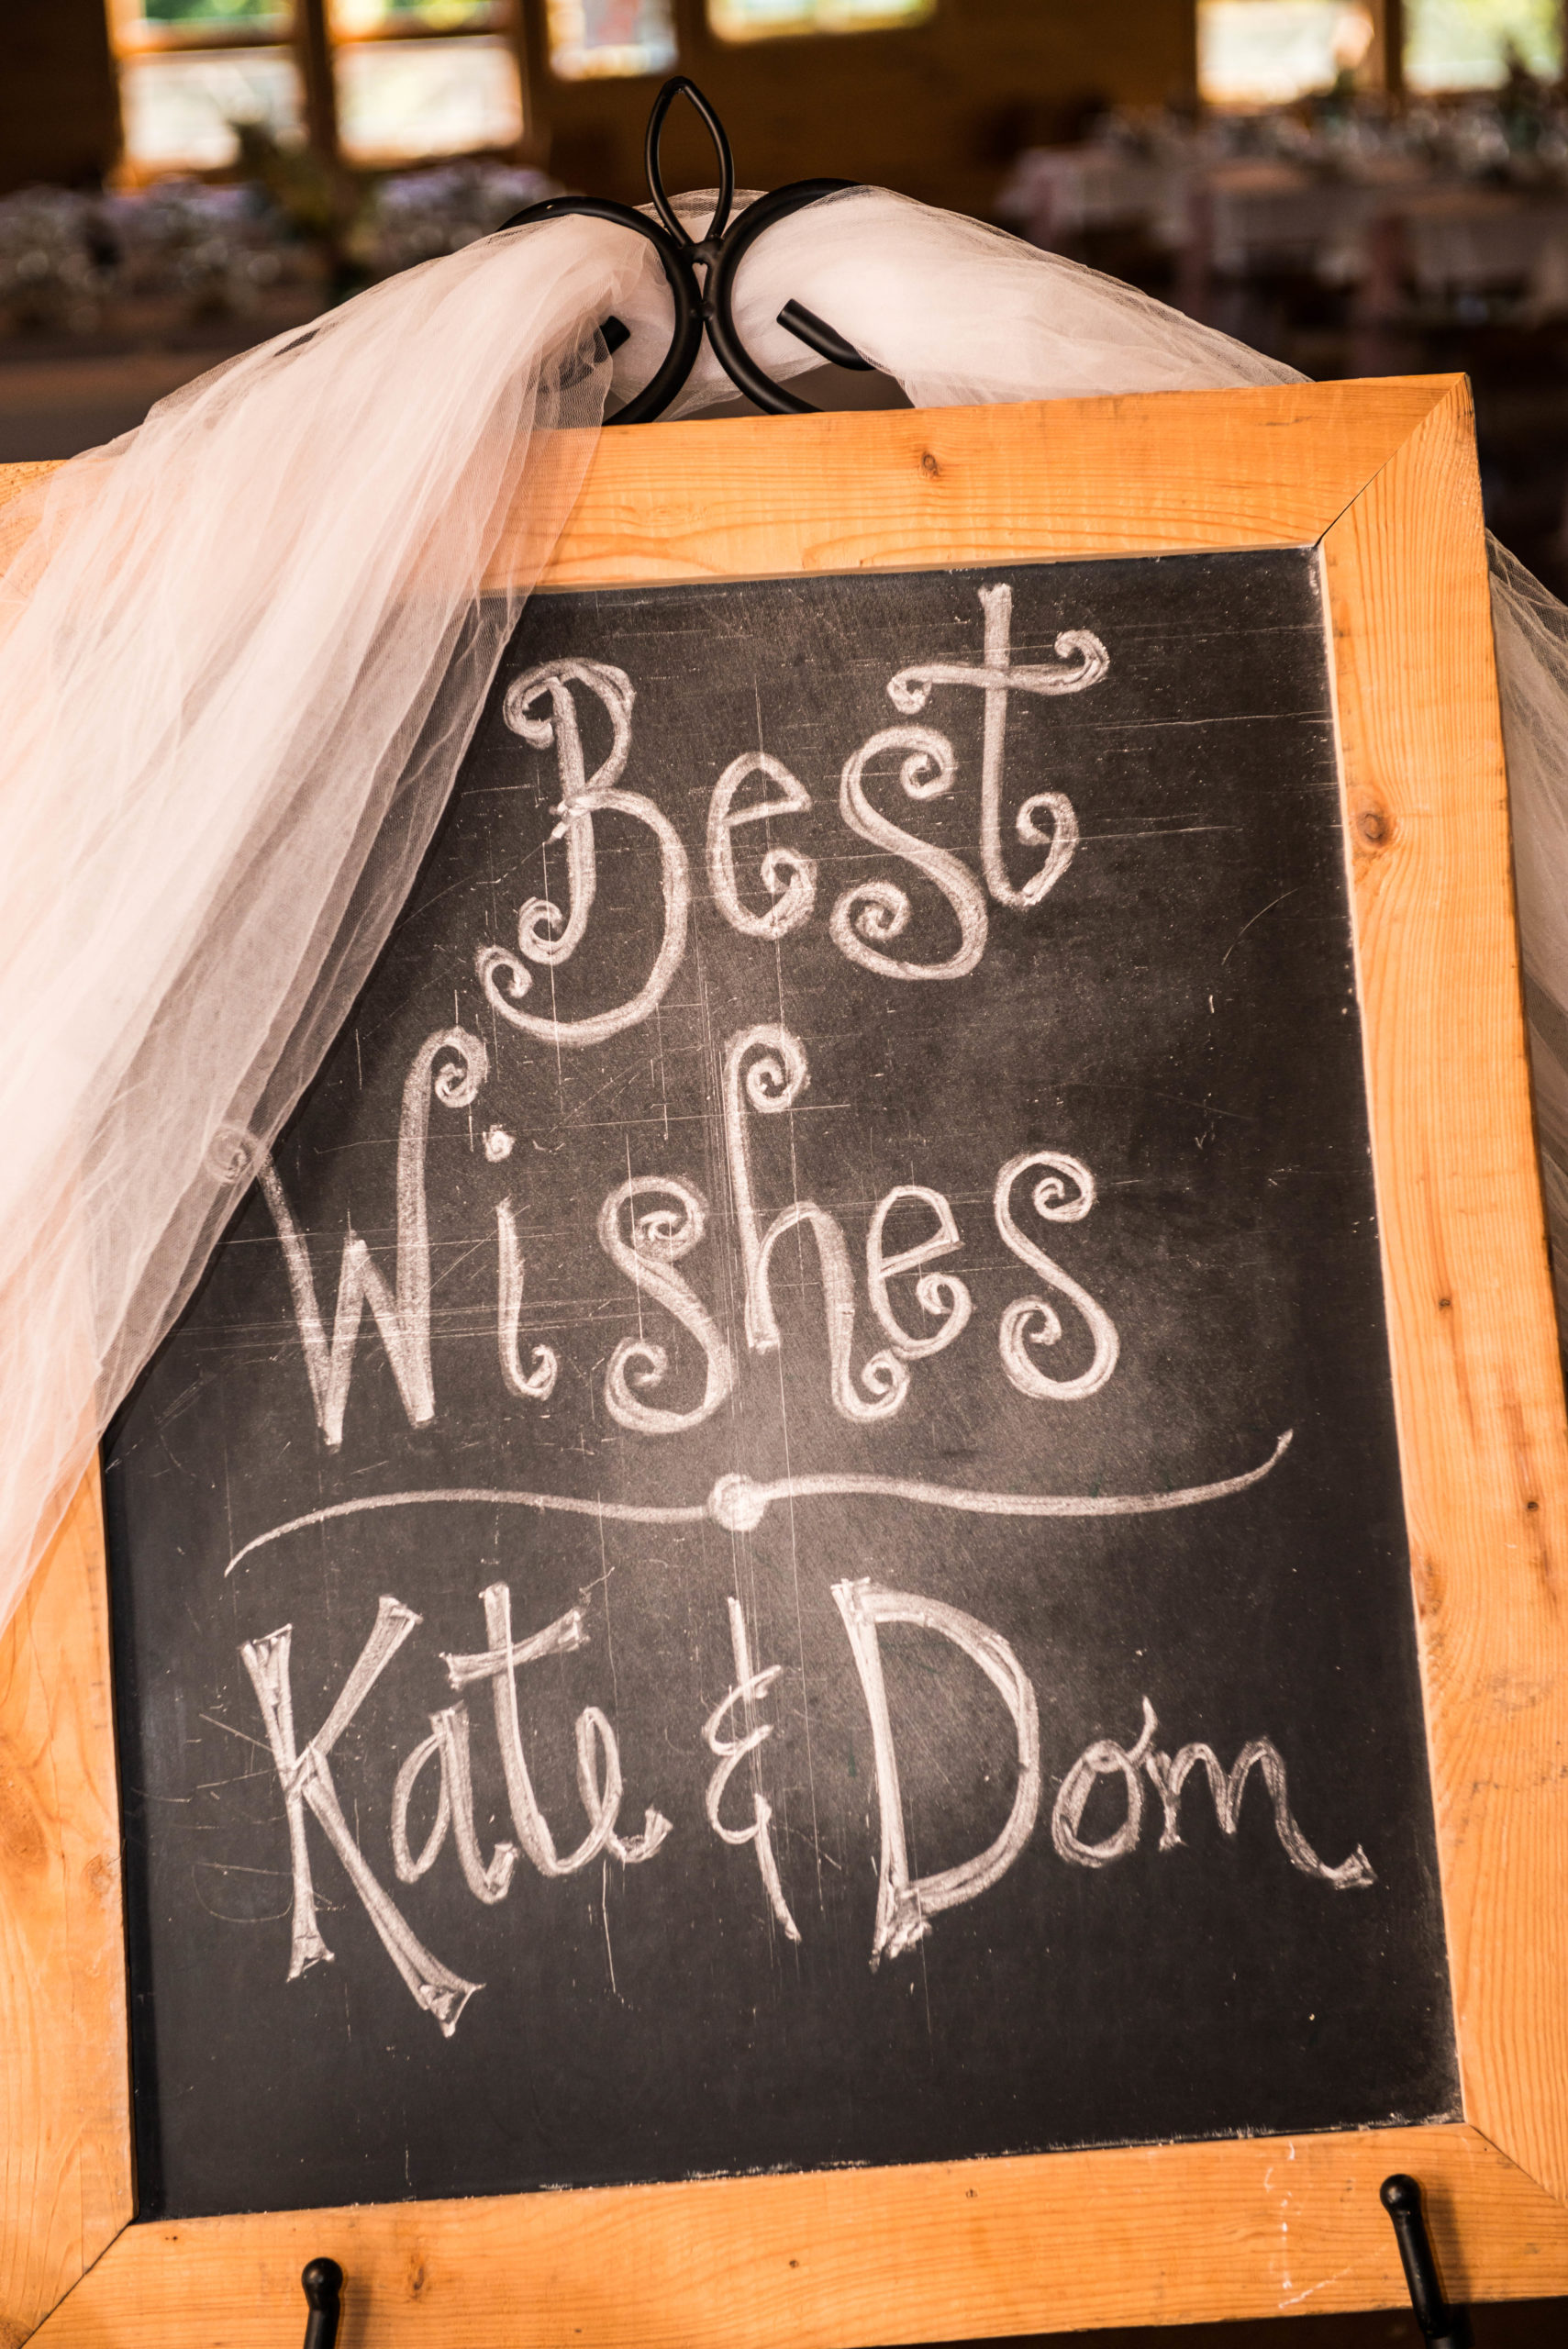 Best
Wishes
Kate & Dom